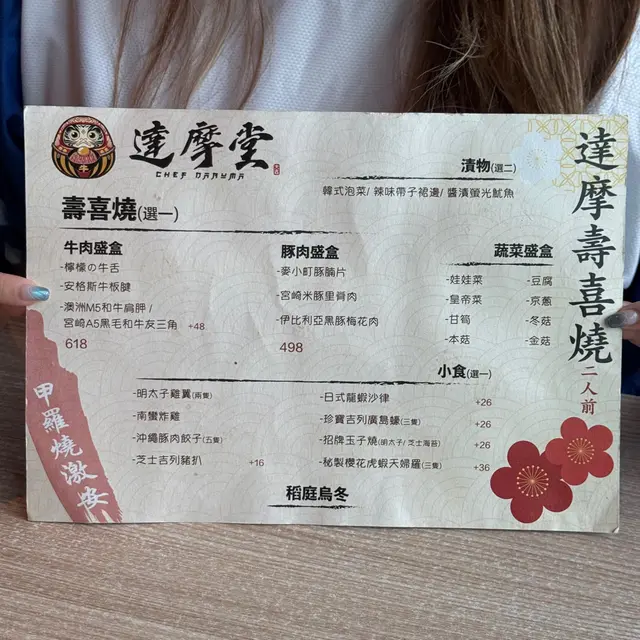 達摩堂
CHEF DARUMA
牛
漬物(選二)
韓式泡菜/ 辣味帶子裙邊/ 醬漬螢光魷魚
壽喜燒(選一)
牛肉盛盒
-檸檬の牛舌
-安格斯牛板腱
-澳洲M5和牛肩胛 /
宮崎A5黑毛和牛友三角 +48
618
豚肉盛盒
-麥小町豚腩片
-宮崎米豚里脊肉
-伊比利亞黑豚梅花肉
498
蔬菜盛盒
-娃娃菜 -豆腐
-皇帝菜 -京蔥
-甘筍 -冬菇
-本菇 -金菇
小食(選一)
-明太子雞翼(兩隻)
-南蠻炸雞
-沖繩豚肉餃子(五隻)
-芝士吉列豬扒 +16
-日式龍蝦沙律 +26
-珍寶吉列廣島蠔(三隻) +26
-招牌玉子燒(明太子/ 芝士海苔) +26
-秘製櫻花虎蝦天婦羅(三隻) +36
稻庭烏冬
達摩壽喜燒
二人前
甲羅燒激安